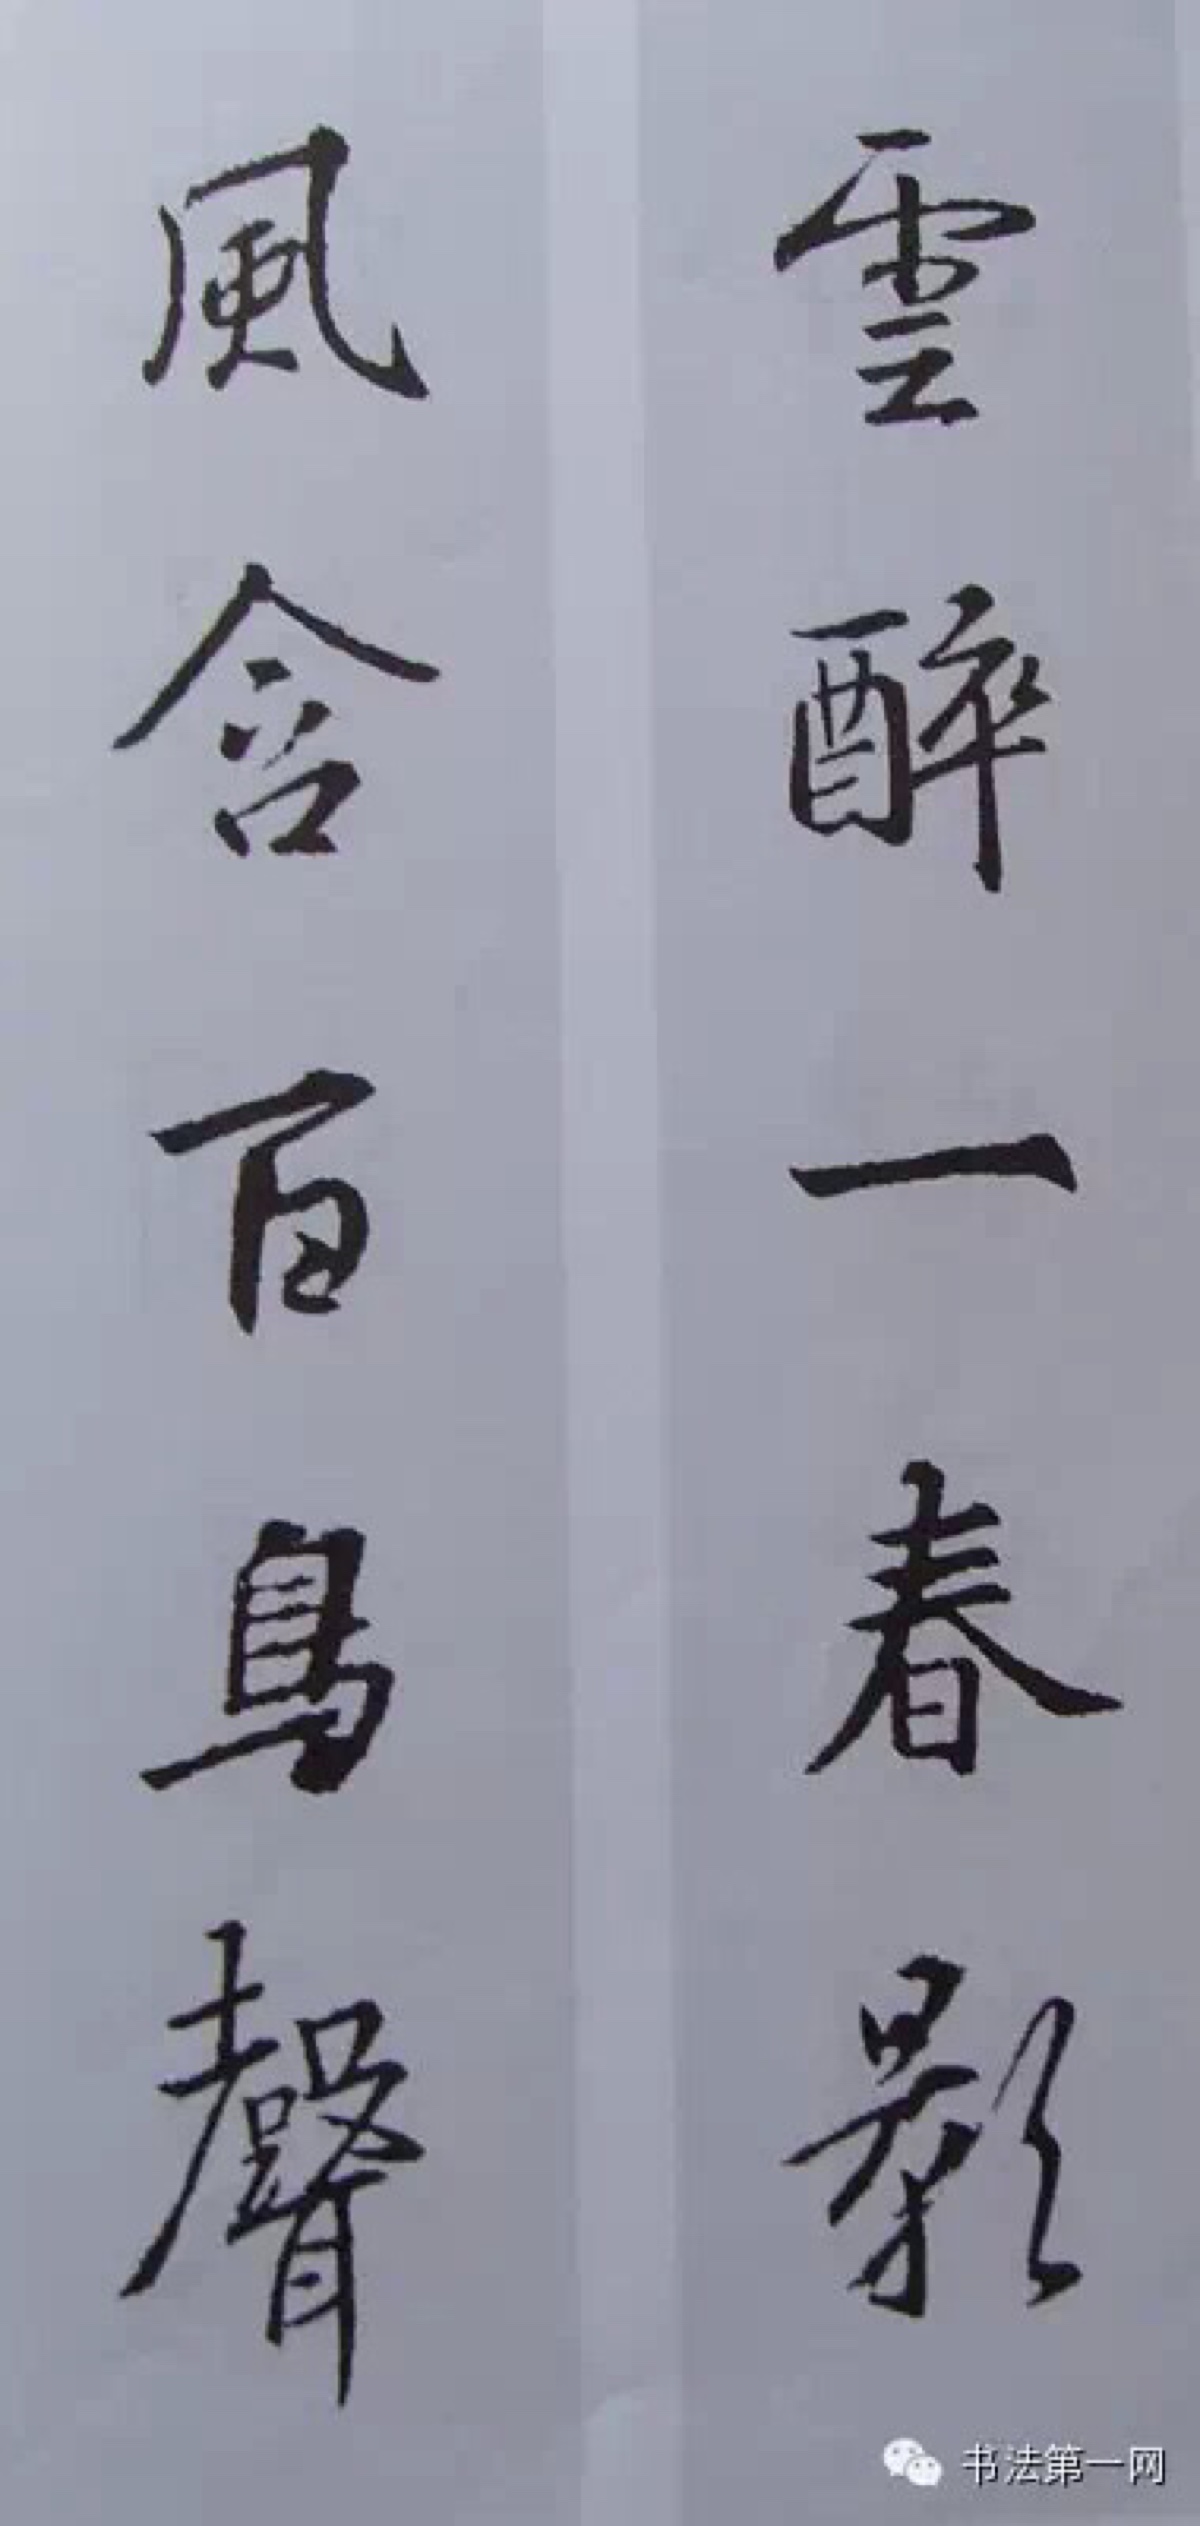 雲醉一春影
風含百鳥聲
书法第一网